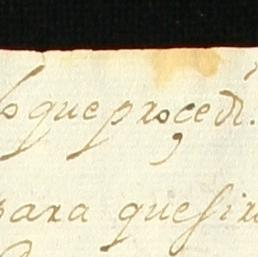 que proçedi
para que sir